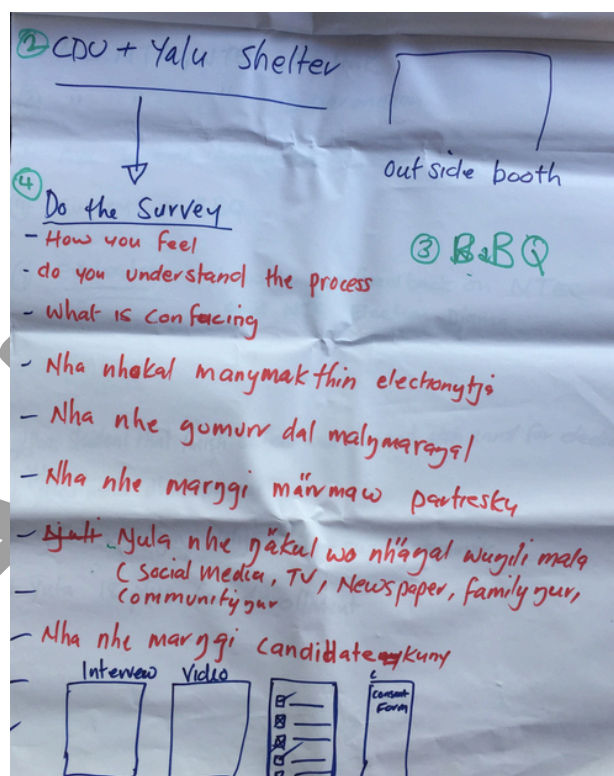 ② CDU + Yalu Shelter
outside booth
④ Do the Survey
③ B&BQ
- How you feel
- do you understand the process
- What is confacing
- Nha nhokal manymak thin electionytji
- Nha nhe gumurr dal malŋmaraŋal
- Nha nhe marŋgi märrmaw partiesky
- Ŋula nhe ŋäkul wo nhäŋal wuŋili mala
( Social Media, TV, Newspaper, family ŋur,
- Community ŋur
- Nha nhe marŋgi candidate kuny
Interview Video
Consent
Form